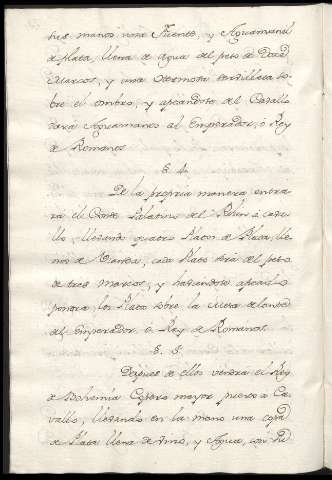 sus manos una Fuente, y Aguamanil
de plata, llena de Agua del peso de Doze
Marcos, y una Hermosa Servilleta so-
bre el ombro, y apeandose del Cavallo
dará Aguamanos al Emperador, ó Rey
de Romanos
§. 4.
De la propria manera entra-
rá el Conde Palatino del Rhin á cava-
llo, llevando quatro Platos de Plata, lle-
nos de Vianda, cada Plato será del peso
de tres Marcos, y haviendose apeado
pondra los Platos sobre la Mesa delante
del Emperador, ó Rey de Romanos
§. 5.
Despues de ellos vendra el Rey
de Bohemia Copero mayor puesto a Ca-
vallo, llevando en la mano una copa
de Plata llena de vino, y Agua, con su